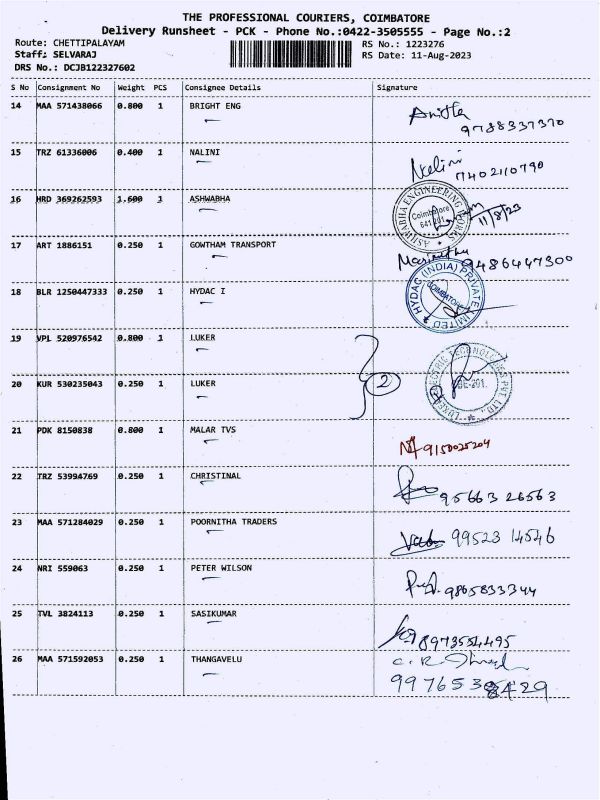 THE PROFESSIONAL COURIERS, COIMBATORE
Delivery Runsheet - PCK - Phone No.:0422-3505555 - Page No.:2
Route: CHETTIPALAYAM RS No.: 1223276
Staff: SELVARAJ RS Date: 11-Aug-2023
DRS No.: DCJB122327602
S No Consignment No Weight PCS Consignee Details Signature
14 MAA 571438066 0.800 1 BRIGHT ENG Anitha
9788337370
15 TRZ 61336006 0.400 1 NALINI Nalini
7402110790
16 HRD 369262593 1.600 1 ASHWABHA ASHWABHA ENGINEERING WORKS Coimbatore 641 201 11/8/23
17 ART 1886151 0.250 1 GOWTHAM TRANSPORT
9486447300
18 BLR 1250447333 0.250 1 HYDAC I HYDAG (INDIA) PRIVATE LIMITED COIMBATORE
19 VPL 520976542 0.800 1 LUKER
20 KUR 530235043 0.250 1 LUKER 2
21 PDK 8150838 0.800 1 MALAR TVS 9150025204
22 TRZ 53994769 0.250 1 CHRISTINAL 95663 26563
23 MAA 571284029 0.250 1 POORNITHA TRADERS 99523 14546
24 NRI 559063 0.250 1 PETER WILSON 9865833344
25 TVL 3824113 0.250 1 SASIKUMAR 8973554495
26 MAA 571592053 0.250 1 THANGAVELU C. R.